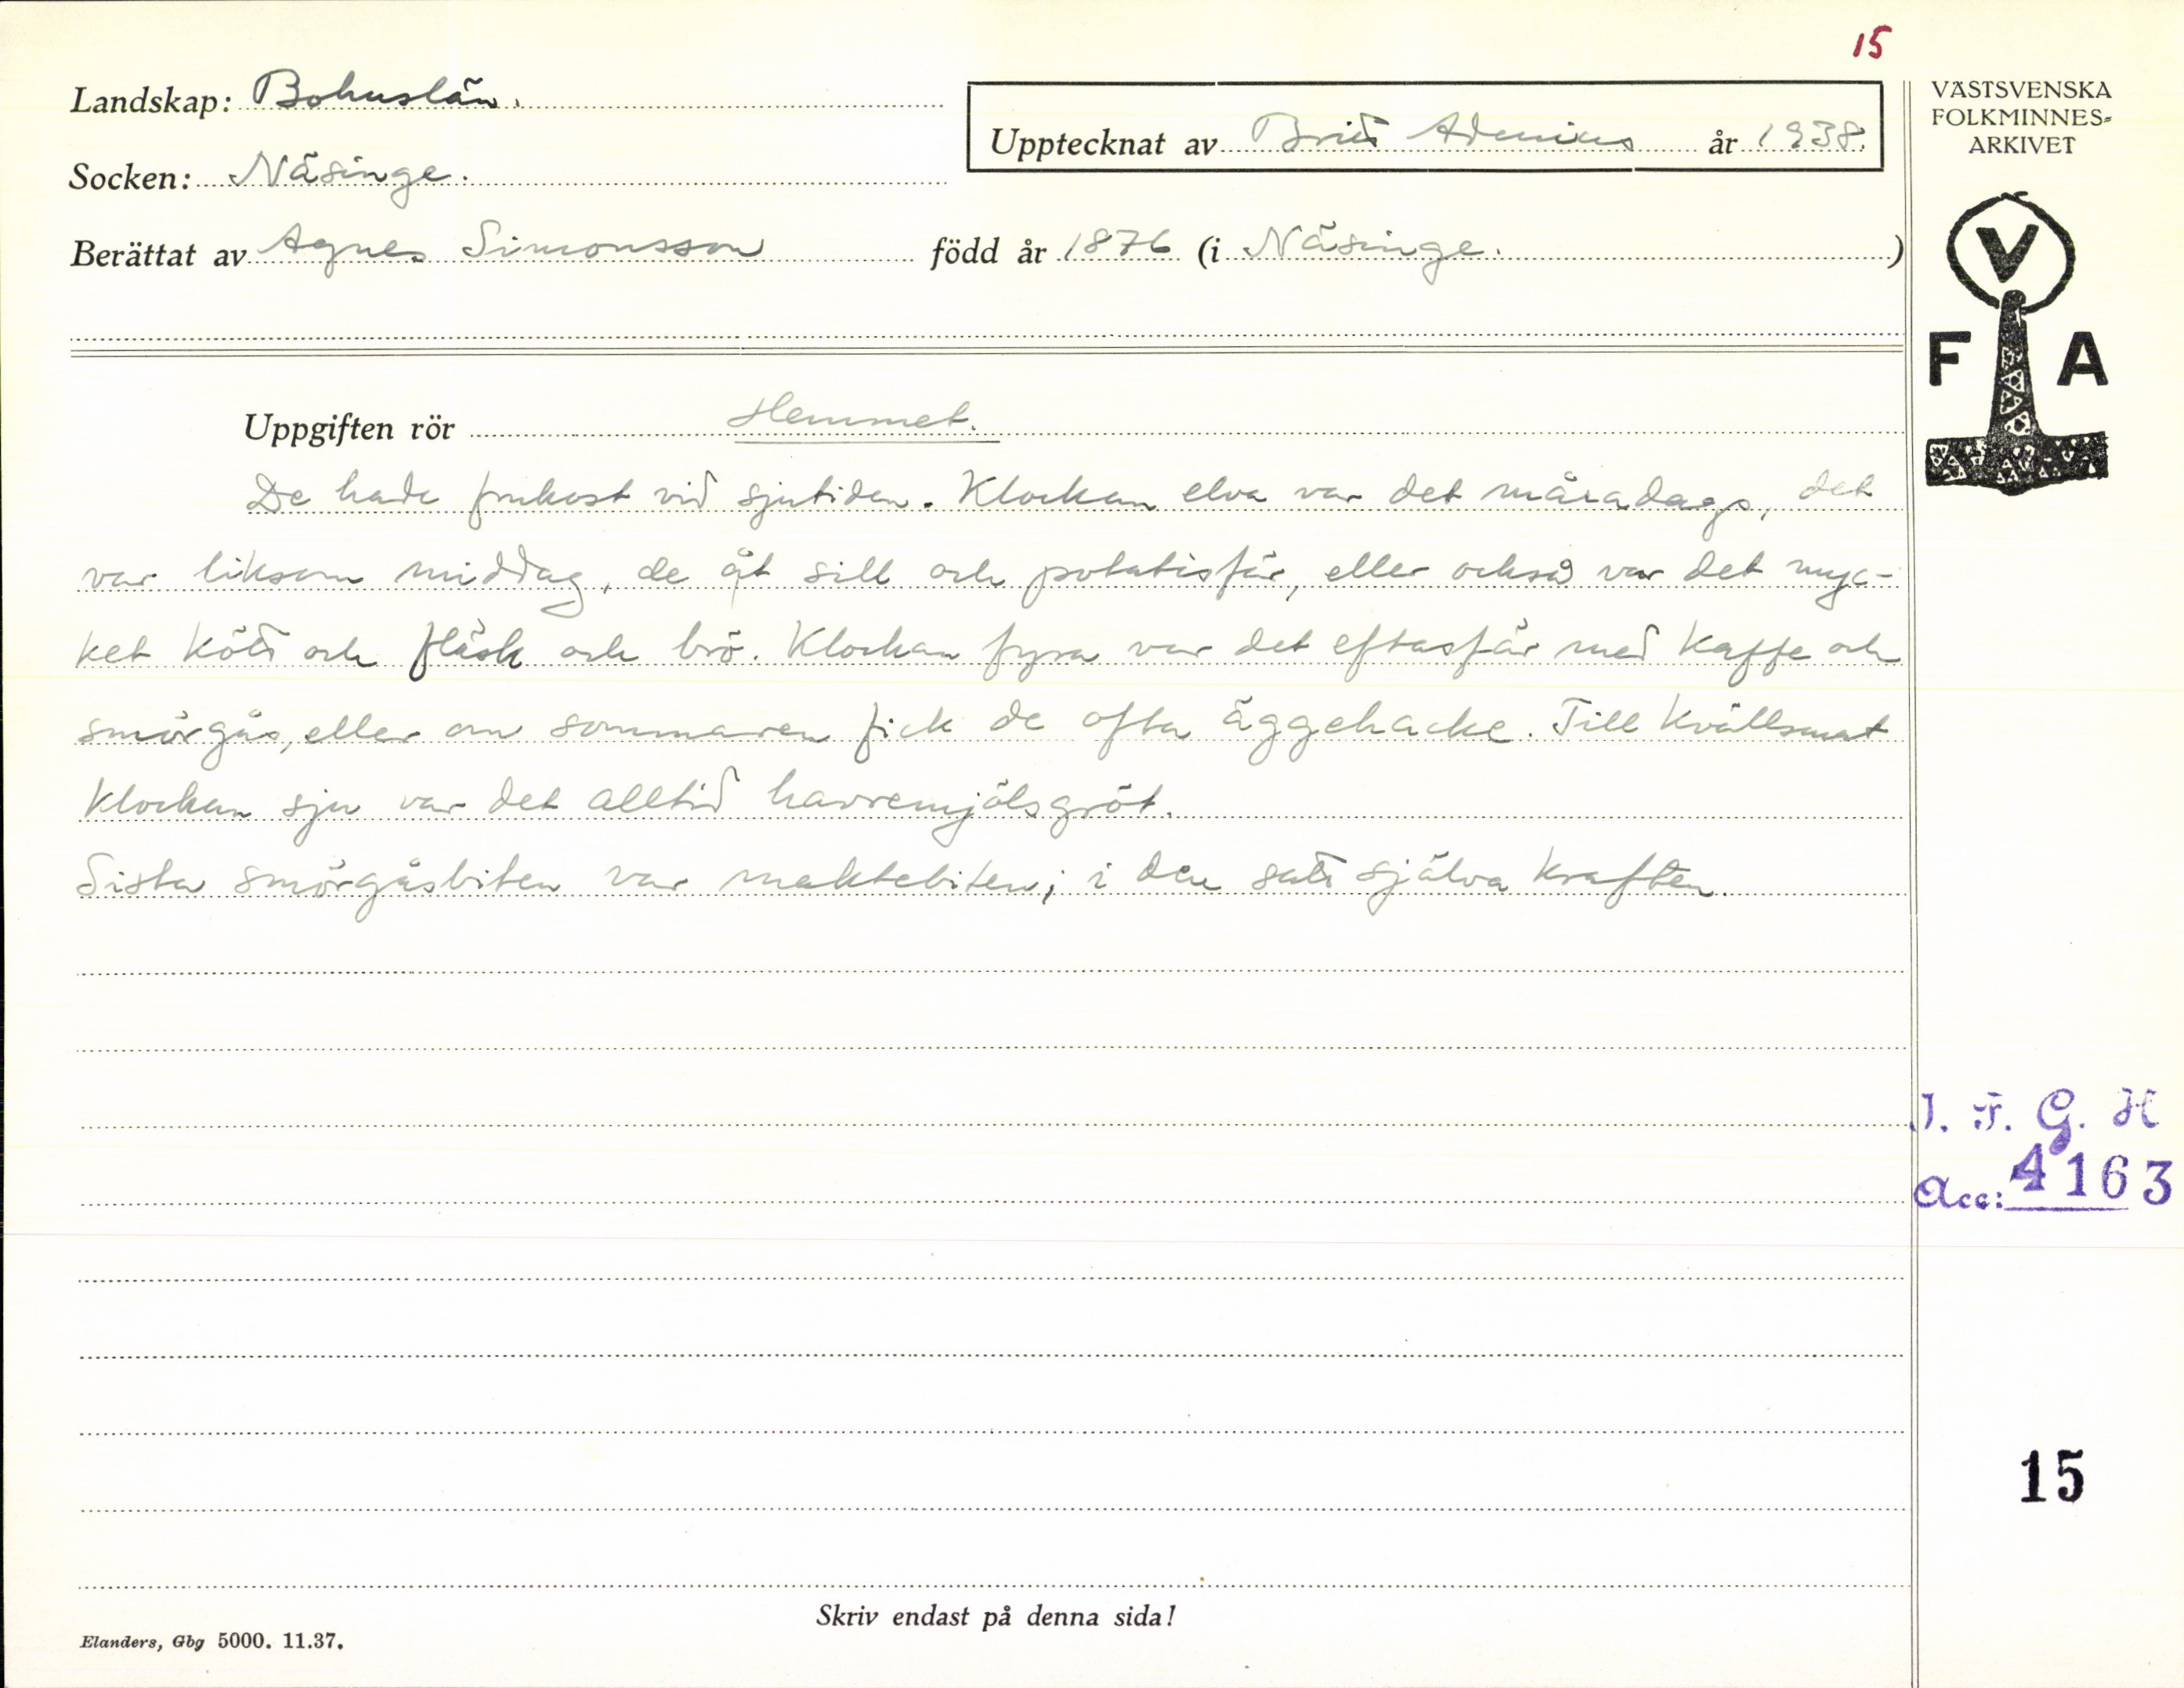 15
Landskap: Bohuslän.
Upptecknat av Britt Adenius år 1938.
Socken: Näsinge.
Berättat av Agnes Simonsson född år 1876 (i Näsinge. )
VÄSTSVENSKA
FOLKMINNES-
ARKIVET
V
F A
Uppgiften rör Hemmet.
De hade frukost vid sjutiden. Klockan elva var det måradags, det
var liksom middag, de åt sill och potatisfür, eller också var det myc-
ket kött och fläsk och brö. Klockan fyra var det eftasfär med kaffe och
smörgås, eller om sommaren fick de ofta äggehacke. Till kvällsmat
klockan sju var det alltid havremjölsgröt.
Sista smörgåsbiten var maktebiten; i den satt själva kraften.
I. F. G. H
Acc: 4163
15
Skriv endast på denna sida!
Elanders, Gbg 5000. 11.37.